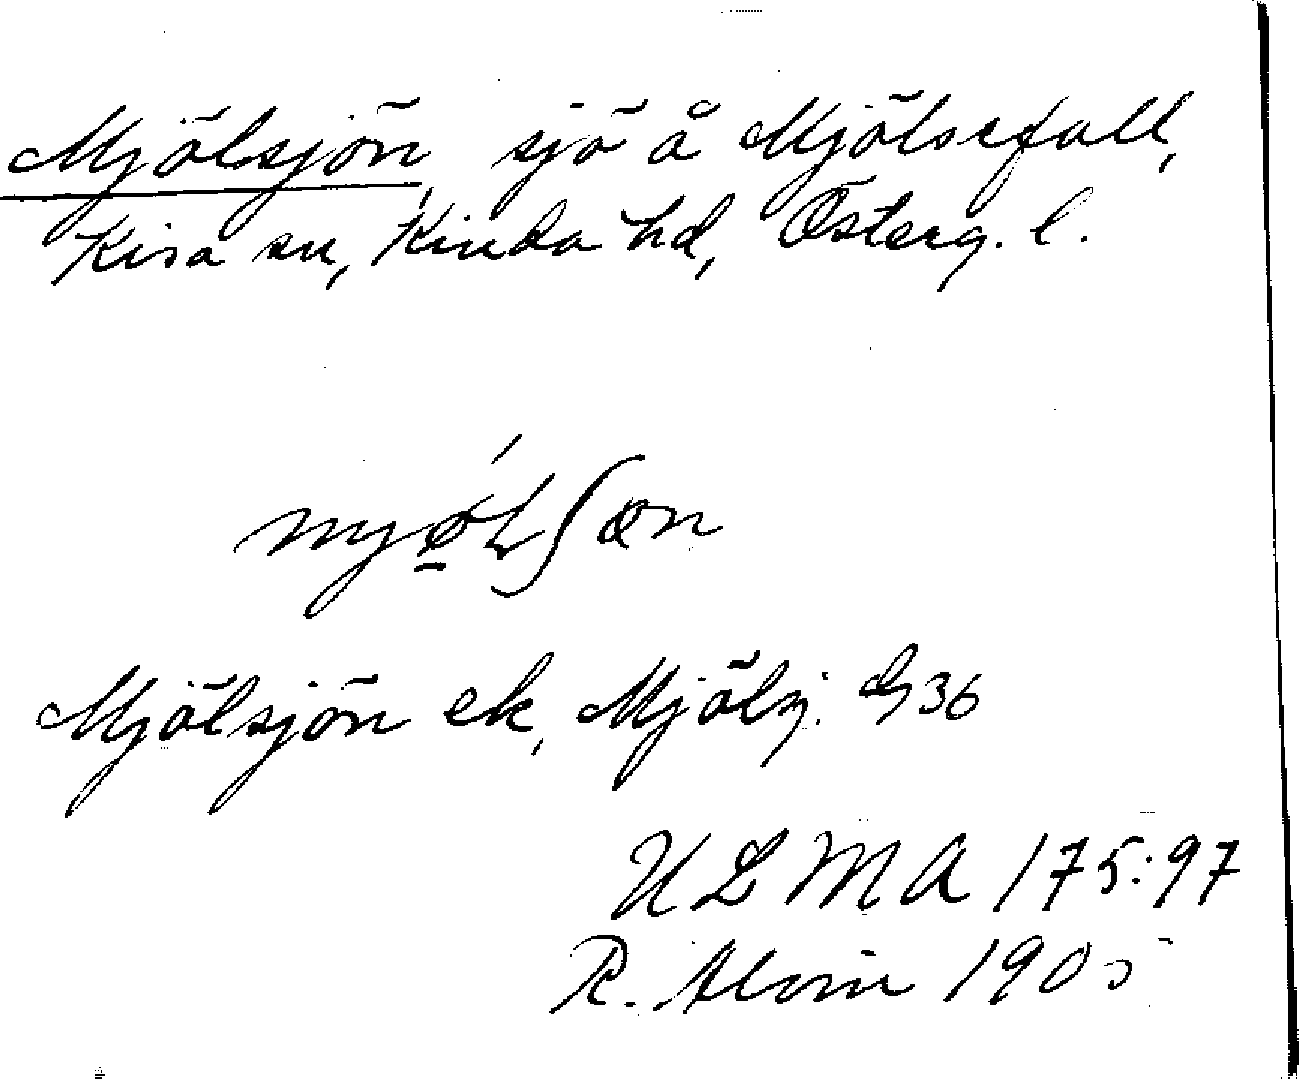 Mjölsjön, sjö å Mjölsefall,
Kisa sn, Kinda hd, Österg. l.
Mjölsjön ek, Mjölsj. G 36
ULMA 175:97
R. Alvin 1905